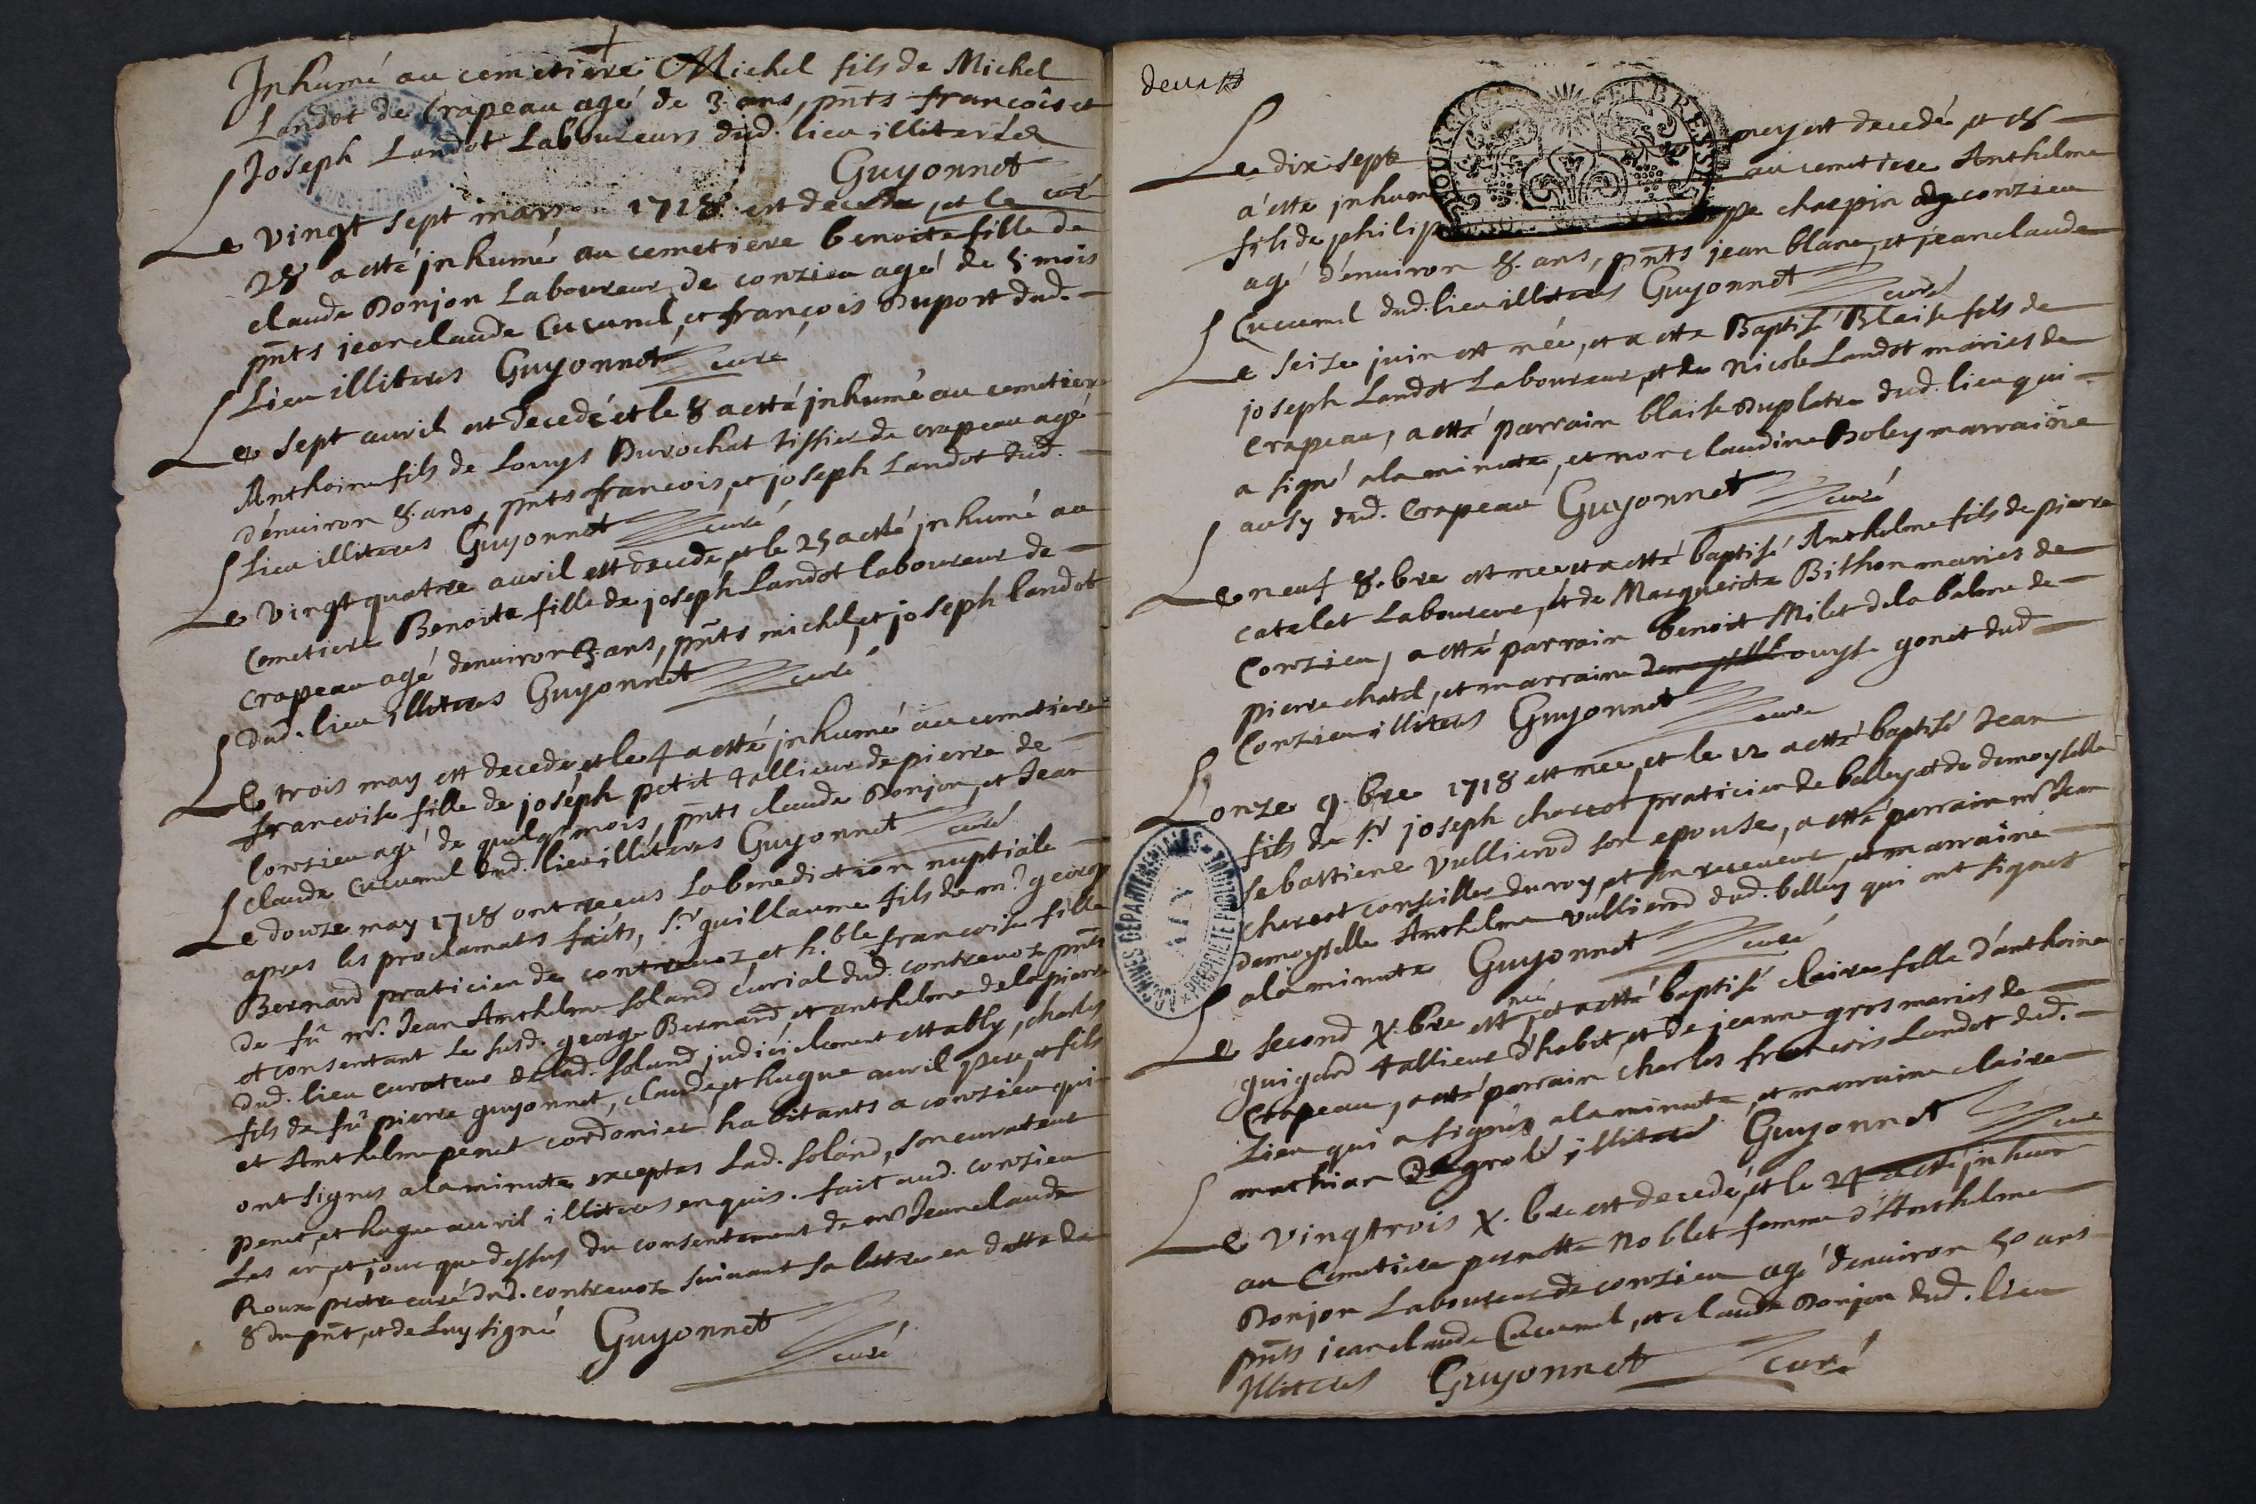 Inhumé au cemetiere Michel fils de Michel
Landot de Crapeau agé de 3 ans, pnts francois et
Joseph Landot Laboureurs dud. lieu illiteres
Guyonnet
curé
Le vingt sept mars 1718 est decedé, et le
28 a esté jnhumé au cemetiere benoite fille de
claude Donjon Laboureur de conzieu agé de 5 mois
pnts jeanclaude Cucumel, et françois Duport dud.
Lieu illiteres Guyonnet curé
Le sept auril est decedé et le 8 a esté jnhumé au cemetiere
Anthoine fils de Louys Durochat tissier de crapeau agé
d'enuiron 8. ans, pnts francois, et joseph Landot dud.
Lieu illiteres Guyonnet curé
Le vingt quatre auril est decedé, et le 25 a esté jnhumé au
Cemetiere Benoite fille de joseph Landot laboureur de
Crapeau agé denuiron 3. ans, pnts michel, et joseph landot
dud. lieu illiteres Guyonnet curé
Le trois may est decedé, et le 4 a esté jnhumé au cemetiere
francoise fille de joseph petit tallieur de pierre de
Conzieu agé de quelqs mois, pnts claude Donjon, et Jean
claude Cucumel dud. lieu illiteres Guyonnet curé
Le douze may 1718 ont receus La benediction nuptiale
apres les proclamats faits, sr. guillaume fils de mr. george
Bernard praticien de contrevoz et h.ble francoise fille
de fû mr. Jean Anthelme Soland curial dud. contrevoz pnts
et consentant Le susd. george Bernard, et anthelme delapierre
dud. lieu curateur de lad. Soland judicielement estably, charles
fils de fû pierre guyonnet, claude, et hugue auril pere, et fils
et Anthelme penet cordonier habitants a conzieu qui
ont signes a la minute exceptes Lad. Soland, son curateur
penet, et hugue auril illiteres enquis. fait aud. conzieu
Les an, et jour que dessus du consentement de mr Jeanclaude
Roux pretre curé dud. contrevoz suiuant sa lettre en datte du
8 du pnt, et de Luy signé Guyonnet
curé
deux
Le dix sept may est decedé et le 18
a esté jnhumé au cemetiere Anthelme
fils de philippe charpin de conzieu
agé d'enuiron 8. ans, pnts jean blanc, et jeanclaude
Cucumel dud. lieu illiteres Guyonnet curé
Le seize juin est née, et a esté Baptisé Blaise fils de
joseph Landot Laboureur, et de Nicole Landot maries de
Crapeau, a esté parrain blaise Duplatre dud. lieu qui
a signé a la minute, et non claudine Boley marraine
ausy dud. Crapeau Guyonnet curé
Le neuf 8.bre est née et a esté baptisé Anthelme fils de pierre
Catelet Laboureur, et de Marguerite Bithon maries de
Conzieu, a esté parrain benoit Milet dela balme de
pierre chatel, et marraine Louyse gonet dud
Conzieu illiteres Guyonnet curé
L onze 9.bre 1718 est née, et le 12 a esté baptisé Jean
fils de sr. joseph charcot praticien de belley, et de demoyselle
sebastiene vullierod son epouse, a esté parrain mr Jean
charcot conseiller du roy, et son receueur, et marraine
demoyselle Anthelme vullierod dud. belley qui ont signes
a la minute Guyonnet curé
Le second X.bre est née, et a esté baptisé claire fille d'anthoine
guigard tallieur d'habit, et de jeanne gros maries de
Crapeau, a esté parrain charles francois Landot dud.
Lieu qui a signé a la minute, et marraine claire
mathian de grolé illitere Guyonnet curé
Le vingtrois X.bre est decedé, et le 24 a esté jnhumé
au Cemetiere pernette Noblet femme d'Anthelme
Donjon Laboureur de conzieu agé d'enuiron 50 ans
pnts jeanclaude Cucumel, et claude Donjon dud. lieu
Illiteres Guyonnet curé